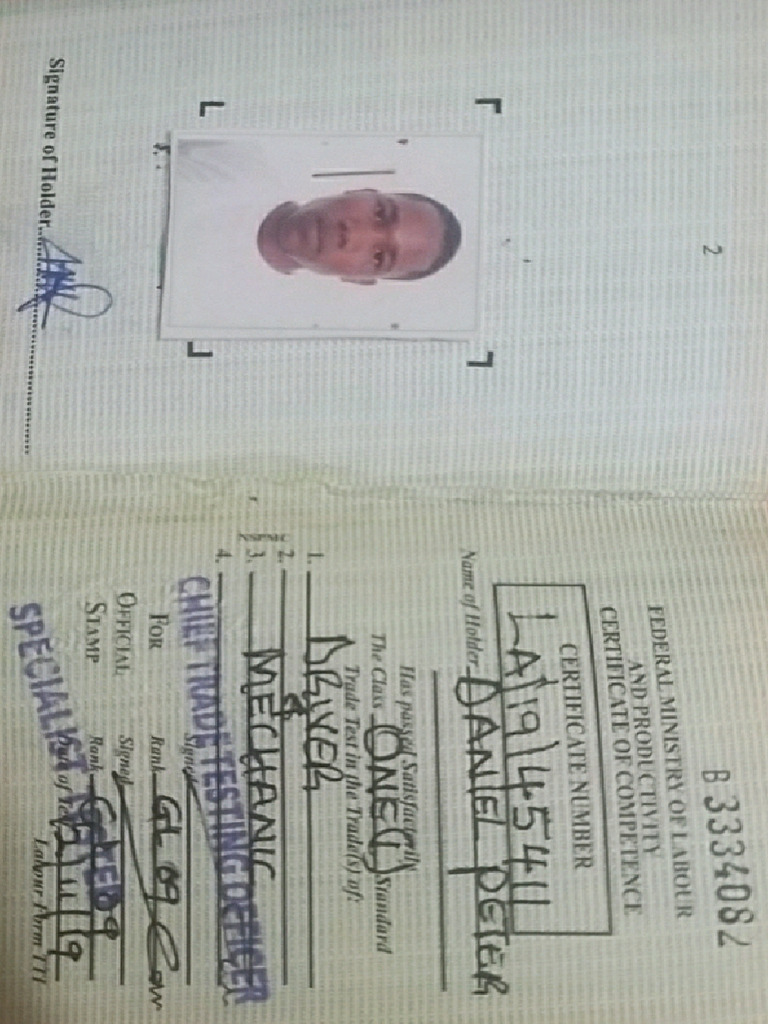 2
Signature of Holder
B 3334082
FEDERAL MINISTRY OF LABOUR
AND PRODUCTIVITY
CERTIFICATE OF COMPETENCE
CERTIFICATE NUMBER
LA/19/4541
Name of Holder DANIEL PETER
Has passed Satisfactorily
The Class ONE(1) Standard
Trade Test in the Trade(s) of:
1. DRIVER
2. &
3. MECHANIC
4.
NSPMC
CHIEF TRADE TESTING OFFICER
Signed
FOR Rank GL 09
OFFICIAL Signed
STAMP Rank
SPECIALIST
Labour Form TT1